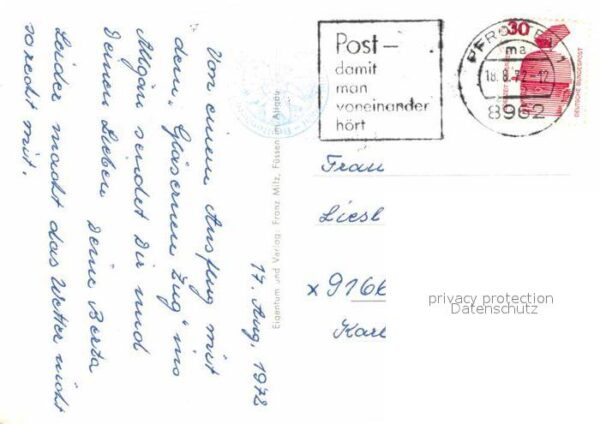 17. Aug. 1972
Von einem Ausflug mit
dem „Gläsernen Zug" ins
Allgäu sendet Dir und
Deinen Lieben
Deine Berta
Leider macht das Wetter nicht
so recht mit.
Eigentum und Verlag: Franz Milz, Füssen im Allgäu
Post–
damit
man
voneinander
hört
PFRONTEN 1
ma
18.8.72-12
8962
30
DEUTSCHE BUNDESPOST
Frau
Liesl
x 9166
Karl
privacy protection
Datenschutz